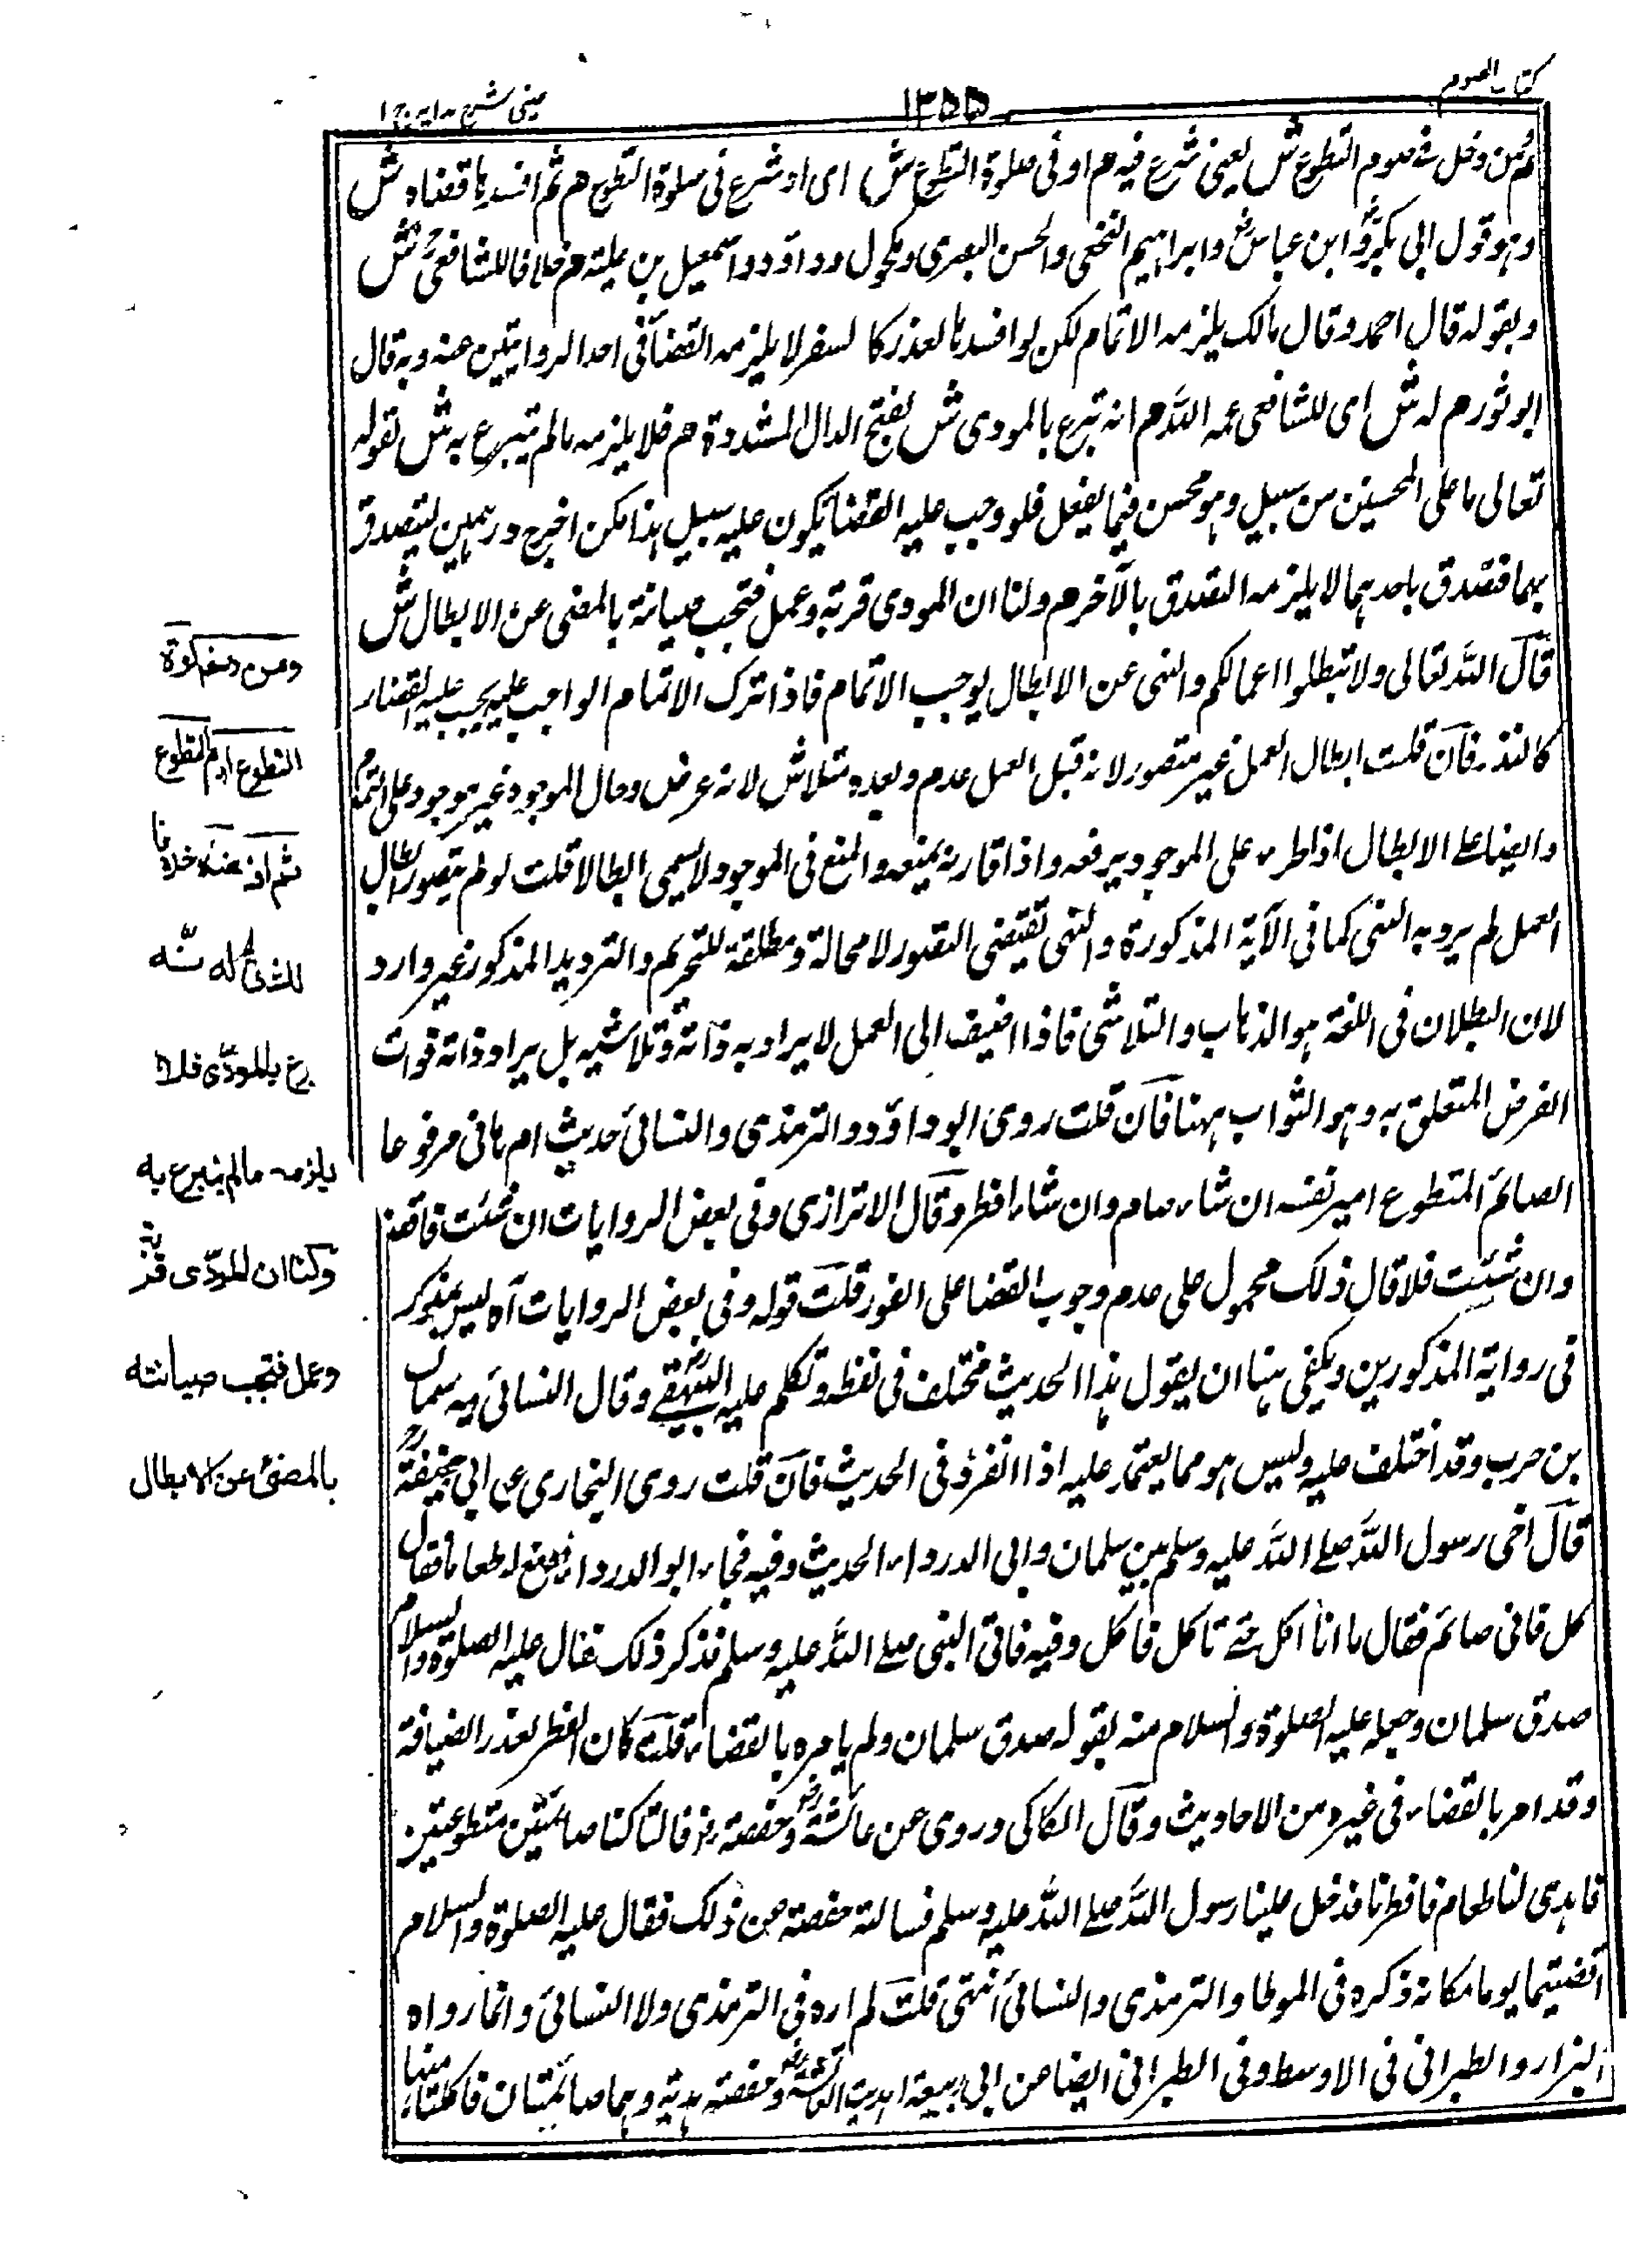 كتاب الصوم
١٣٥٥
عینی شرح هدایه ج ١
م ومن دخل في صوم التطوع ش يعنى شرع فيه م او في صلوة التطوع ش اى او شرع في صلوة التطوع م ثم افسدها قضاه ش
وهو قول ابي بكرؓ وابن عباسؓ وابراهيم النخعى والحسن البصرى ومكحول وداؤد واسمعيل بن علية م خلافا للشافعىؒ ش
وبقوله قال احمد وقال مالك يلزمه الاتمام لكن لو افسدها لعذر كالسفر لا يلزمه القضاء فى احد الروايتين عنه وبه قال
ابو ثور م له ش اى للشافعى رحمه الله م انه تبرع بالمودى ش بفتح الدال المشددة م فلا يلزمه ما لم يتبرع به ش لقوله
تعالى ما على المحسنين من سبيل وهو محسن فيما يفعل فلو وجب عليه القضا يكون عليه سبيل هذا كمن اخرج درهمين ليتصدق
بهما فتصدق باحدهما لا يلزمه التصدق بالآخر م ولنا ان المودى قربة وعمل فتجب صيانة بالمضى عن الابطال ش
قال الله تعالى ولا تبطلوا اعمالكم والنهى عن الابطال يوجب الاتمام فاذا ترك الاتمام الواجب عليه يجب عليه القضاء
كالنذر فان قلت ابطال العمل غير متصور لانه قبل العمل عدم وبعده متلاش لانه عرض وحال الموجود غير موجود على التمام
وايضا الابطال اذا طرء على الموجود يرفعه واذا قارنه يمنعه والمنع فى الموجود لا يسمى ابطالا قلت لو لم يتصور ابطال
العمل لم يرد به النهى كما فى الآية المذكورة والنهى يقتضى التصور لا محالة ومطلقة للتحريم والترديد المذكور غير وارد
لان البطلان فى اللغة هو الذهاب والتلاشى فاذا اضيف الى العمل لا يراد به ذاته وتلاشيه بل يراد ذاته فوات
الغرض المتعلق به وهو الثواب ههنا فان قلت روى ابو داؤد والترمذى والنسائى حديث ام هانى مرفوعا
الصائم المتطوع امير نفسه ان شاء صام وان شاء افطر وقال الاترازى وفى بعض الروايات ان شئت فاقض
وان شئت فلا قال ذلك محمول على عدم وجوب القضا على الفور قلت قوله وفى بعض الروايات آه ليس بمذكور
فى رواية المذكورين ويكفى هنا ان يقول هذا الحديث مختلف فى لفظه وتكلم عليه البيهقى وقال النسائى فيه سماك
بن حرب وقد اختلف عليه وليس هو مما يعتمد عليه اذا انفرد فى الحديث فان قلت روى البخارى عن ابى جحيفة
قال آخى رسول الله صلى الله عليه وسلم بين سلمان وابى الدرداء الحديث وفيه فجاء ابو الدرداء فصنع له طعاما فقال
كل فانى صائم فقال ما انا آكل حتى تاكل فاكل وفيه فاتى النبى صلى الله عليه وسلم فذكر ذلك فقال عليه الصلوة والسلام
صدق سلمان وجه عليه الصلوة والسلام منه بقوله صدق سلمان ولم يامره بالقضاء قلت كان الفطر لعذر الضيافة
وقد امر بالقضاء فى غيره من الاحاديث وقال الكاكى وروى عن عائشةؓ وحفصةؓ قالتا كنا صائمتين متطوعتين
فاهدى لنا طعام فافطرنا فدخل علينا رسول الله صلى الله عليه وسلم فسالته حفصة عن ذلك فقال عليه الصلوة والسلام
اقضيتما يوما مكانه ذكره فى الموطا والترمذى والنسائى انتهى قلت لم اره فى الترمذى ولا النسائى وانما رواه
البزار والطبرانى فى الاوسط وفى الطبرانى ايضا عن ابى ربيعة اهديت لعائشةؓ وحفصة هدية وهما صائمتان فاكلتا منها
ومن دخل صلوة
التطوع او صوم التطوع
ثم افسده قضاه خلافا
للشافعي له انه
تبرع بالمودّى فلا
يلزمه مالم يتبرع به
ولنا ان المودّى قربة
وعمل فتجب صيانته
بالمضى عن الابطال